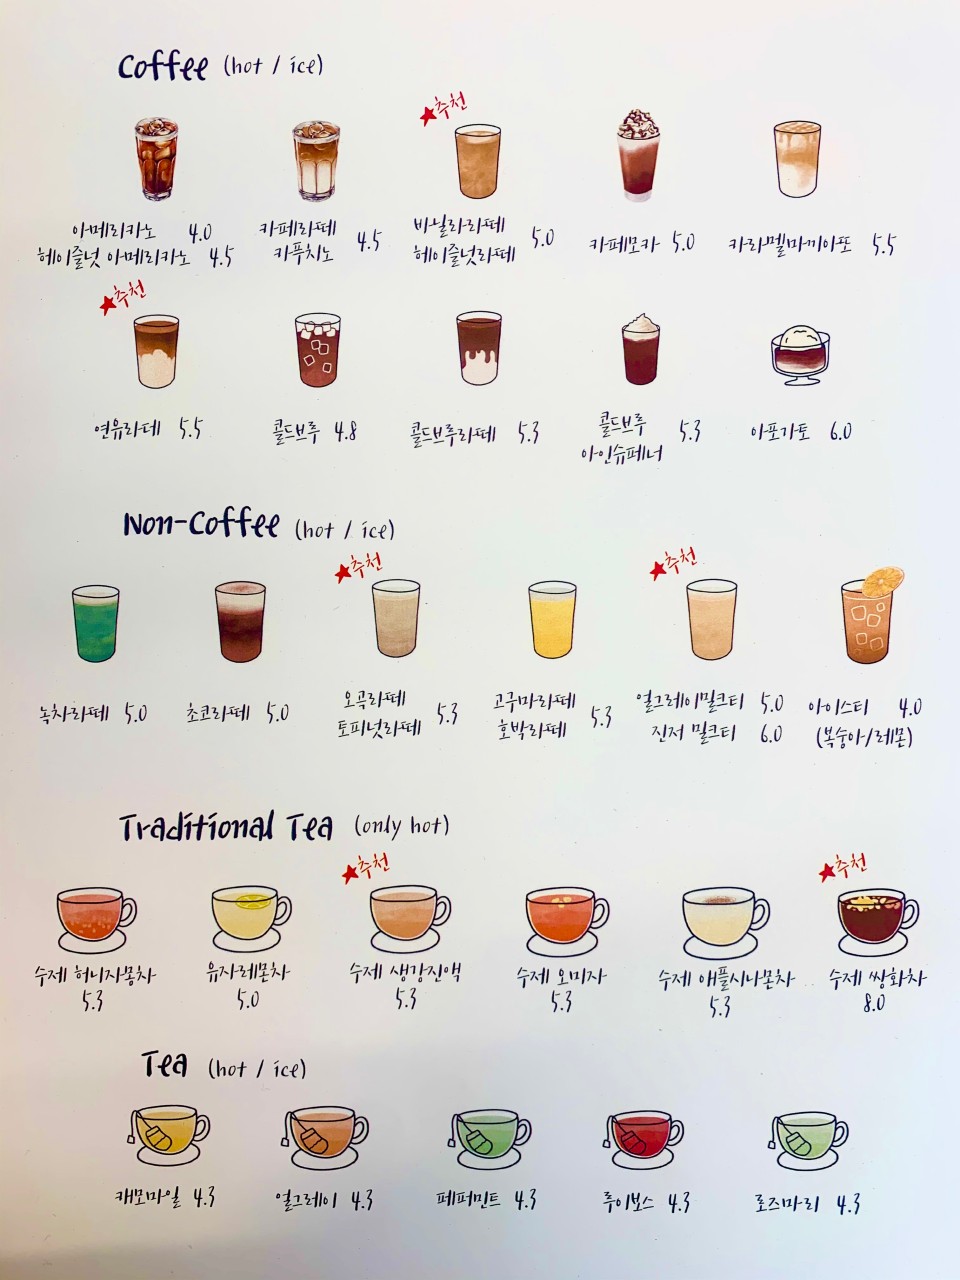 Coffee (hot / ice)
★추천
아메리카노 4.0
헤이즐넛 아메리카노 4.5
카페라떼
카푸치노 4.5
바닐라라떼
헤이즐넛라떼 5.0
카페모카 5.0
카라멜마끼아또 5.5
★추천
연유라떼 5.5
콜드브루 4.8
콜드브루라떼 5.3
콜드브루
아인슈페너 5.3
아포가토 6.0
Non-Coffee (hot / ice)
★추천
★추천
녹차라떼 5.0
초코라떼 5.0
오곡라떼
토피넛라떼 5.3
고구마라떼
호박라떼 5.3
얼그레이밀크티 5.0
진저 밀크티 6.0
아이스티 4.0
(복숭아/레몬)
Traditional Tea (only hot)
★추천
★추천
수제 허니자몽차
5.3
유자레몬차
5.0
수제 생강진액
5.3
수제 오미자
5.3
수제 애플시나몬차
5.3
수제 쌍화차
8.0
Tea (hot / ice)
캐모마일 4.3
얼그레이 4.3
페퍼민트 4.3
루이보스 4.3
로즈마리 4.3